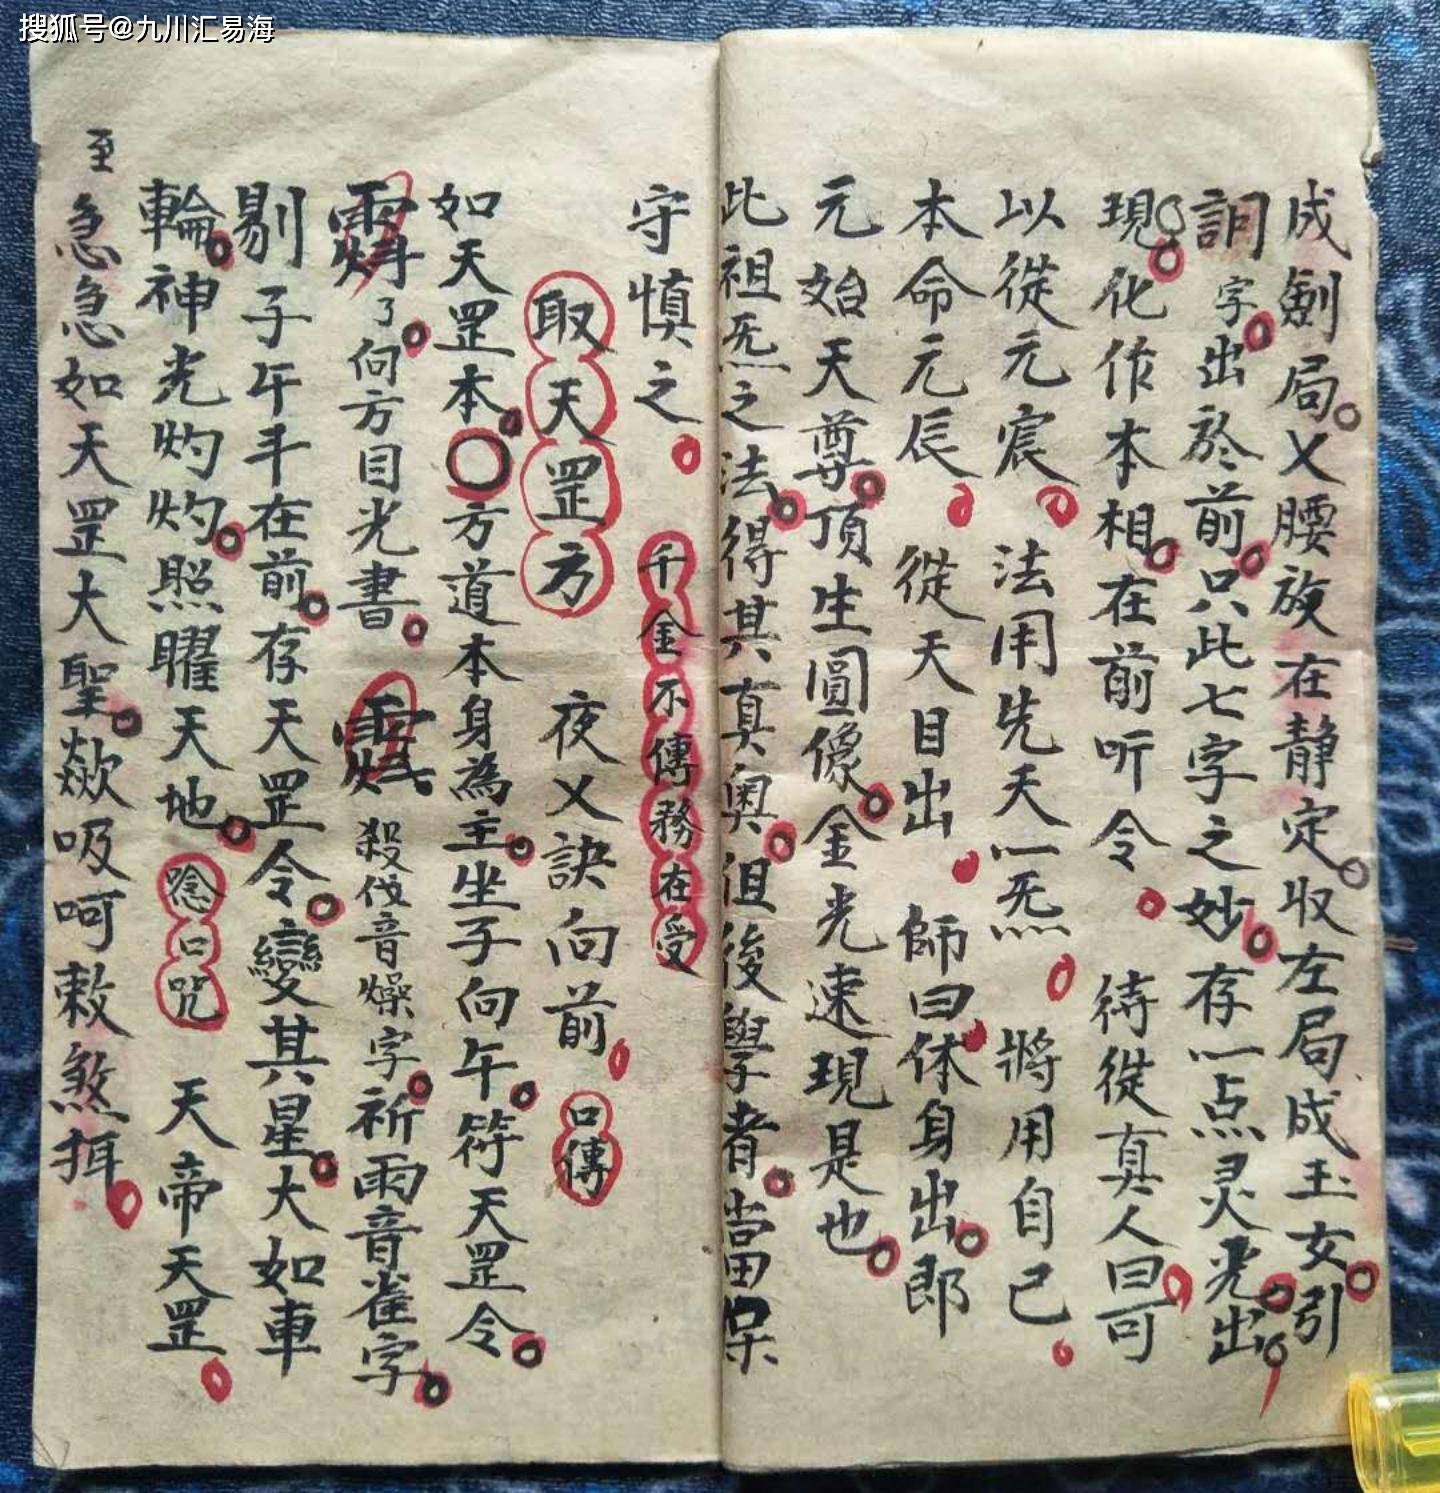 搜狐号@九川汇易海
成劍局乂腰旋在静定収左局成玉女引
詞字出於前只此七字之妙存一点灵光出
現化作本相在前听令 待從真人曰可
以從元宸 法用先天一炁 將用自己
本命元辰 從天目出 師曰休身出郎
元始天尊頂生圓像金光速現是也
此祖炁之法得其真奥但後學者當保
守慎之 千金不傳務在受
取天罡方 夜乂訣向前 口傳
如天罡本〇方道本身為主坐子向午符天罡令
了向方目光書 殺伐音燥字祈雨音雀字
剔子午斗在前存天罡令變其星大如車
輪神光灼灼照曜天地 唸口咒 天帝天罡
至急急如天罡大聖歘吸呵敕煞揖